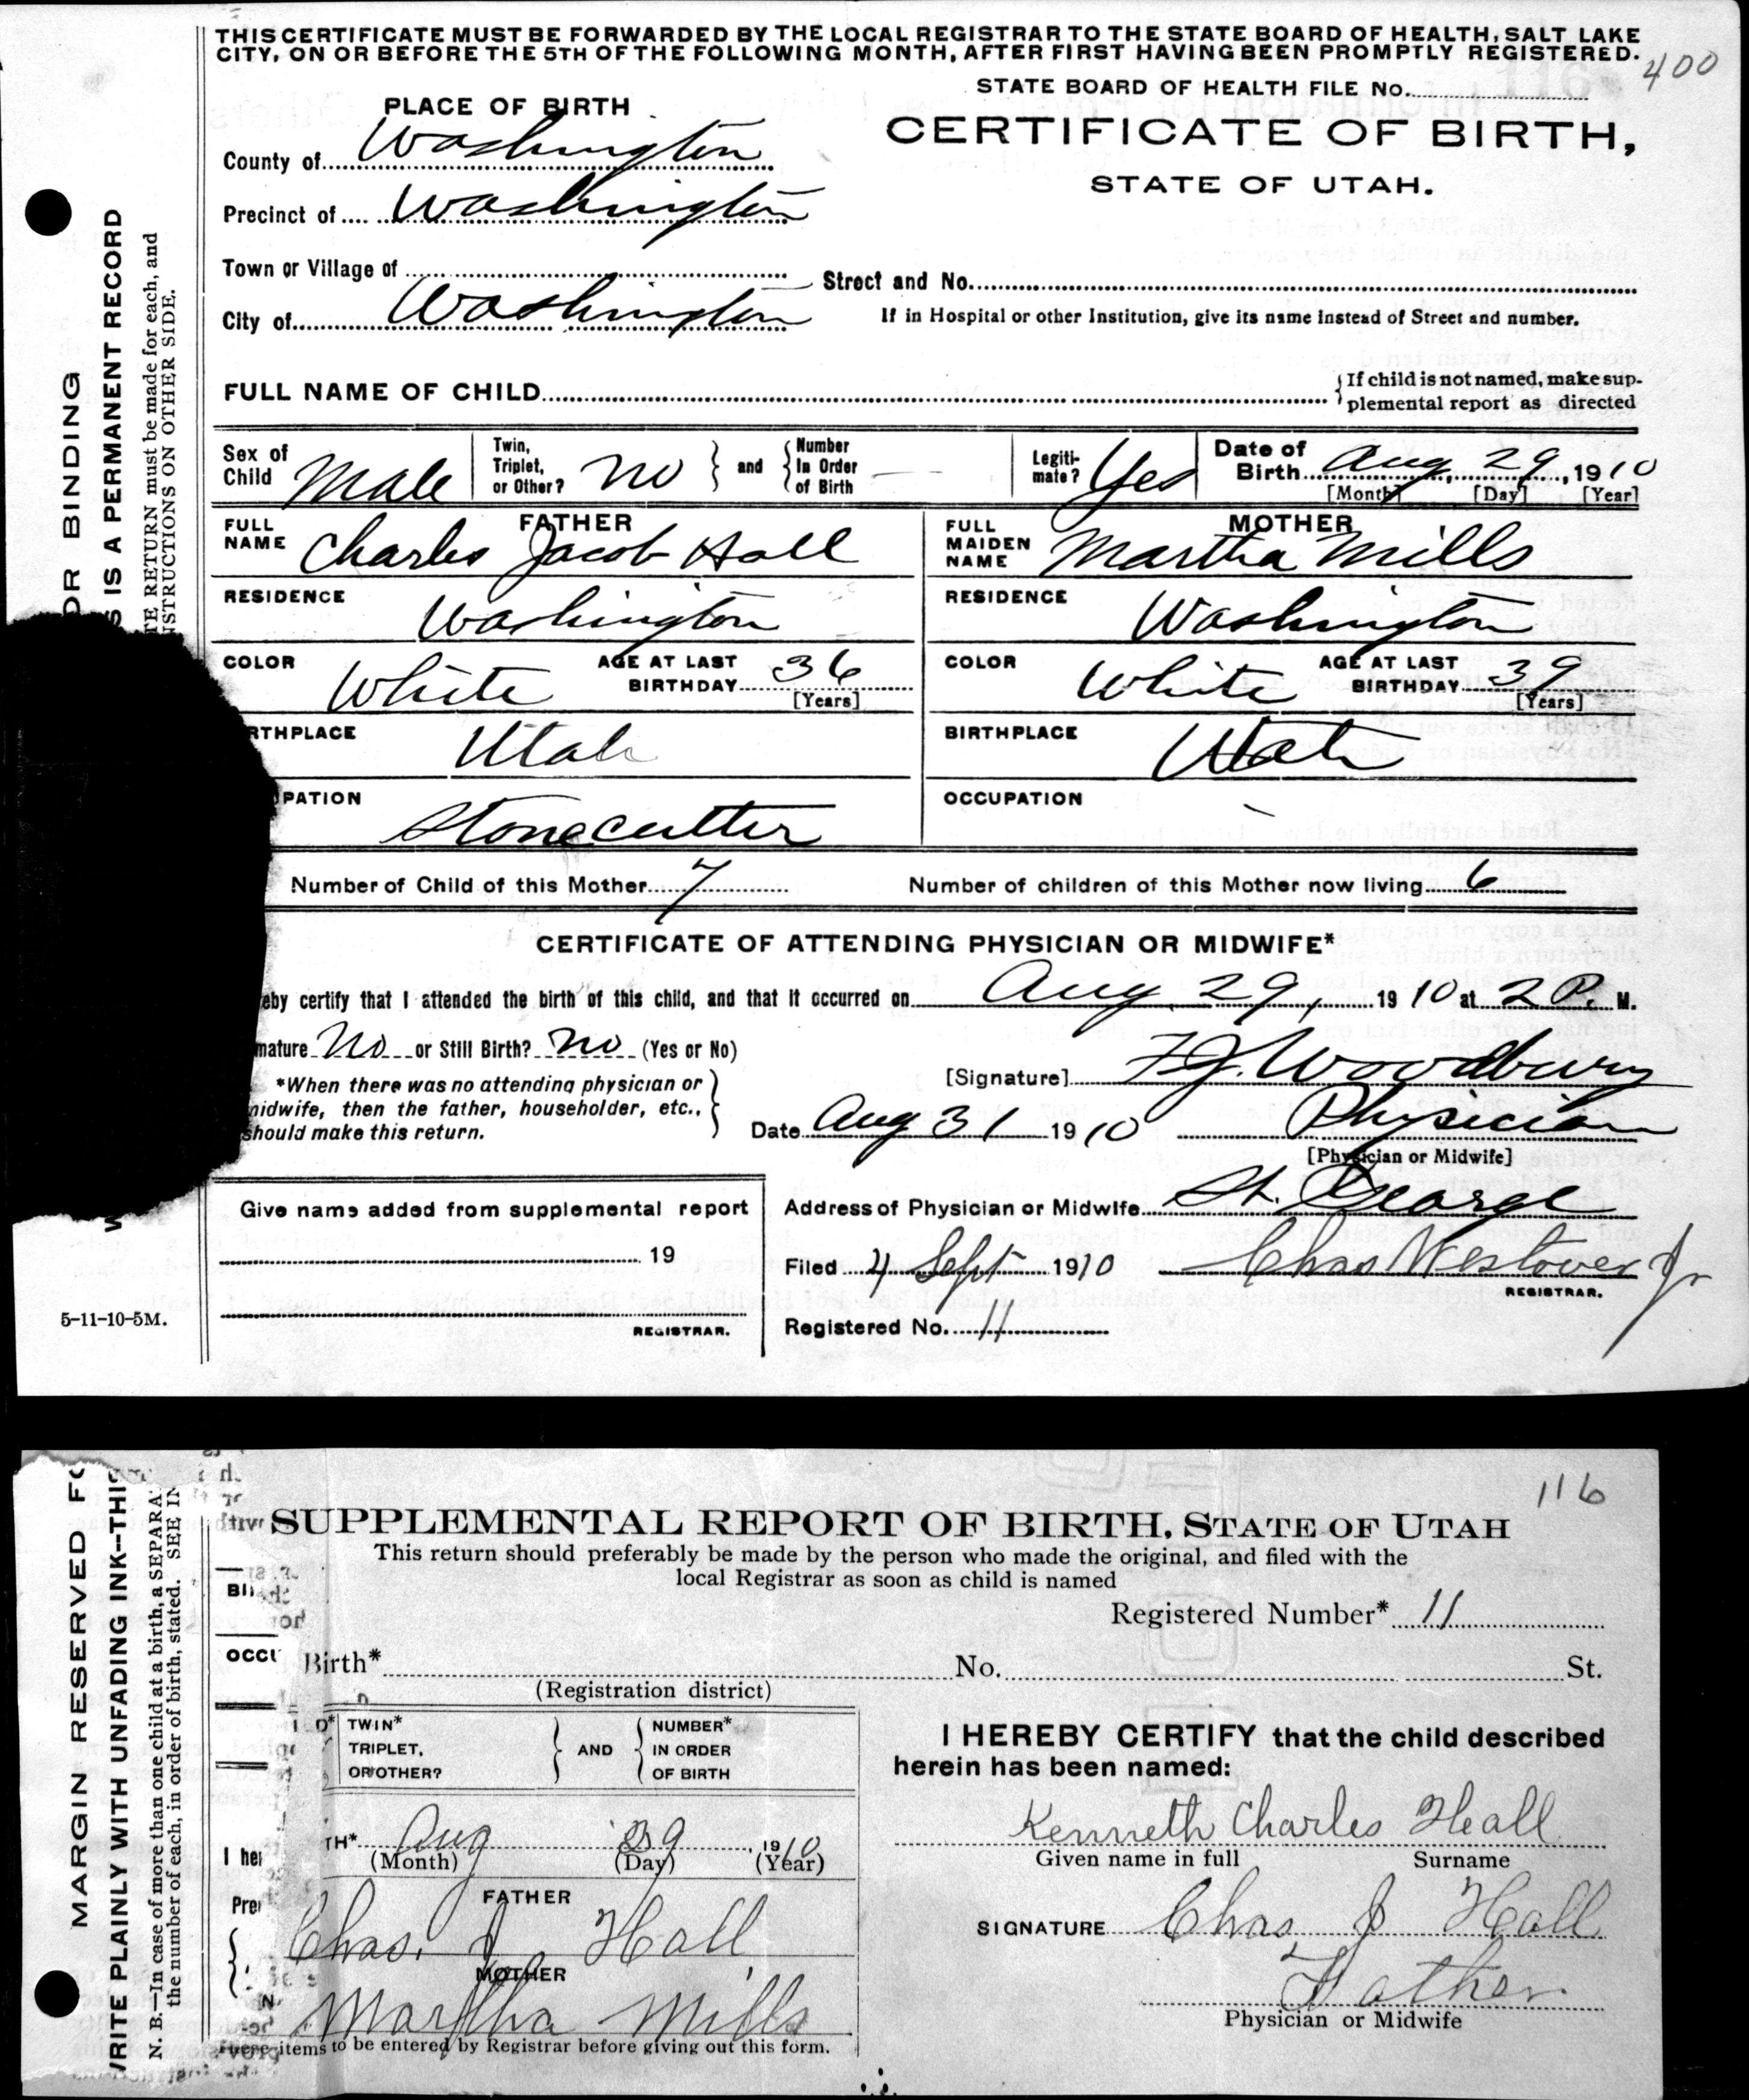 THIS CERTIFICATE MUST BE FORWARDED BY THE LOCAL REGISTRAR TO THE STATE BOARD OF HEALTH, SALT LAKE
CITY, ON OR BEFORE THE 5TH OF THE FOLLOWING MONTH, AFTER FIRST HAVING BEEN PROMPTLY REGISTERED.
400
STATE BOARD OF HEALTH FILE No.
PLACE OF BIRTH
CERTIFICATE OF BIRTH,
STATE OF UTAH.
County of Washington
Precinct of Washington
Town or Village of
Street and No.
City of Washington
If in Hospital or other Institution, give its name instead of Street and number.
FULL NAME OF CHILD
If child is not named, make sup-
plemental report as directed
Sex of Child Male
Twin, Triplet, or Other? No and Number In Order of Birth
Legiti-mate? Yes
Date of Birth Aug, 29, 1910
[Month] [Day] [Year]
FATHER
FULL NAME Charles Jacob Hall
MOTHER
FULL MAIDEN NAME Martha Mills
RESIDENCE Washington
RESIDENCE Washington
COLOR White AGE AT LAST BIRTHDAY 36 [Years]
COLOR White AGE AT LAST BIRTHDAY 39 [Years]
RTHPLACE Utah
BIRTHPLACE Utah
PATION Stonecutter
OCCUPATION
Number of Child of this Mother 7 Number of children of this Mother now living 6
CERTIFICATE OF ATTENDING PHYSICIAN OR MIDWIFE*
eby certify that I attended the birth of this child, and that it occurred on Aug. 29, 1910 at 2 P. M.
mature No or Still Birth? No (Yes or No)
*When there was no attending physician or
midwife, then the father, householder, etc.,
should make this return.
[Signature] F.J. Woodbury
Date Aug 31 1910 Physician
[Physician or Midwife]
Give name added from supplemental report
19
REGISTRAR.
Address of Physician or Midwife St. George
Filed 4 Sept 1910 Chas Westover Jr
REGISTRAR.
Registered No. 11
5-11-10-5M.
OR BINDING
S IS A PERMANENT RECORD
TE RETURN must be made for each, and
NSTRUCTIONS ON OTHER SIDE.
116
SUPPLEMENTAL REPORT OF BIRTH, STATE OF UTAH
This return should preferably be made by the person who made the original, and filed with the
local Registrar as soon as child is named
Registered Number* 11
Birth* No. St.
(Registration district)
TWIN* TRIPLET, OR OTHER? AND NUMBER* IN ORDER OF BIRTH
TH* Aug 29, 1910
(Month) (Day) (Year)
FATHER
Chas. J Hall
MOTHER
Martha Mills
items to be entered by Registrar before giving out this form.
I HEREBY CERTIFY that the child described
herein has been named:
Kenneth Charles Hall
Given name in full Surname
SIGNATURE Chas J Hall
Father
Physician or Midwife
MARGIN RESERVED FO
WRITE PLAINLY WITH UNFADING INK—THIS
N. B.—In case of more than one child at a birth, a SEPARA
the number of each, in order of birth, stated. SEE IN
OCCU
I her
Prer